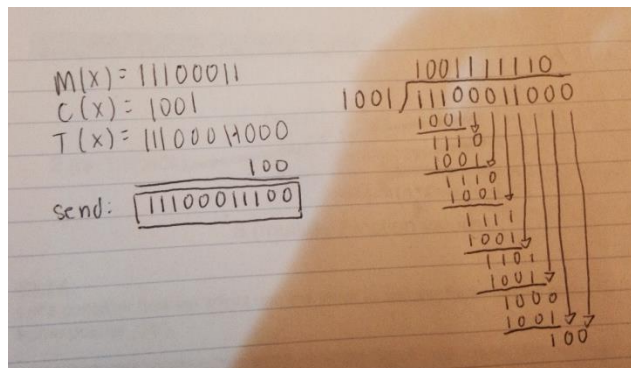 M(x) = 11100011
C(x) = 1001
T(x) = 11100011000
100
send: 11100011100
1001111110
1001 11100011000
1001
1110
1001
1110
1001
1111
1001
1101
1001
1000
1001
100